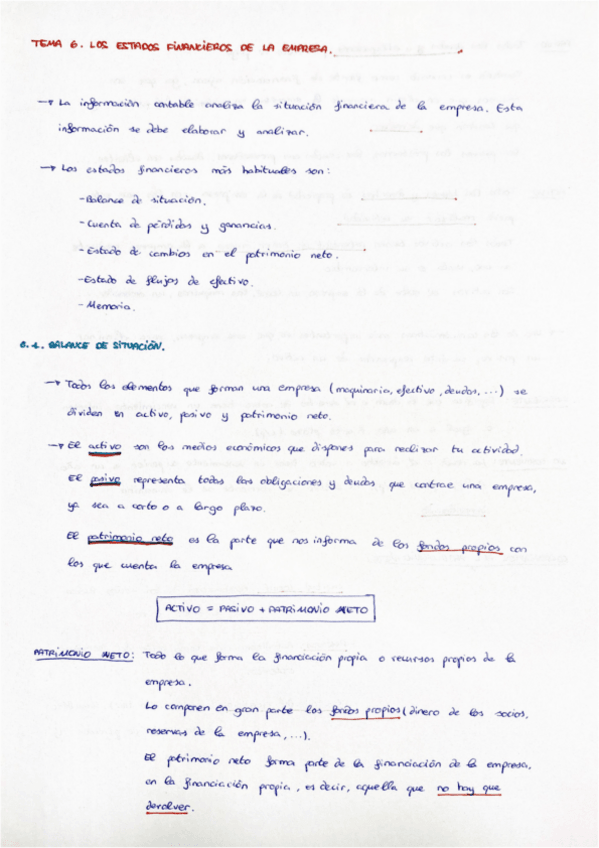 TEMA 6. LOS ESTADOS FINANCIEROS DE LA EMPRESA.
→ La información contable analiza la situación financiera de la empresa. Esta
información se debe elaborar y analizar.
→ Los estados financieros más habituales son:
-Balance de situación.
-Cuenta de pérdidas y ganancias.
-Estado de cambios en el patrimonio neto.
-Estado de flujos de efectivo.
-Memoria.
6.1. BALANCE DE SITUACIÓN.
→ Todos los elementos que forman una empresa (maquinaria, efectivo, deudas, ...) se
dividen en activo, pasivo y patrimonio neto.
→ El activo son los medios económicos que dispones para realizar tu actividad.
El pasivo representa todas las obligaciones y deudas que contrae una empresa,
ya sea a corto o a largo plazo.
El patrimonio neto es la parte que nos informa de los fondos propios con
los que cuenta la empresa
ACTIVO = PASIVO + PATRIMONIO NETO
PATRIMONIO NETO: Todo lo que forma la financiación propia o recursos propios de la
empresa.
Lo componen en gran parte los fondos propios (dinero de los socios,
reservas de la empresa, ...).
El patrimonio neto forma parte de la financiación de la empresa,
en la financiación propia, es decir, aquella que no hay que
devolver.